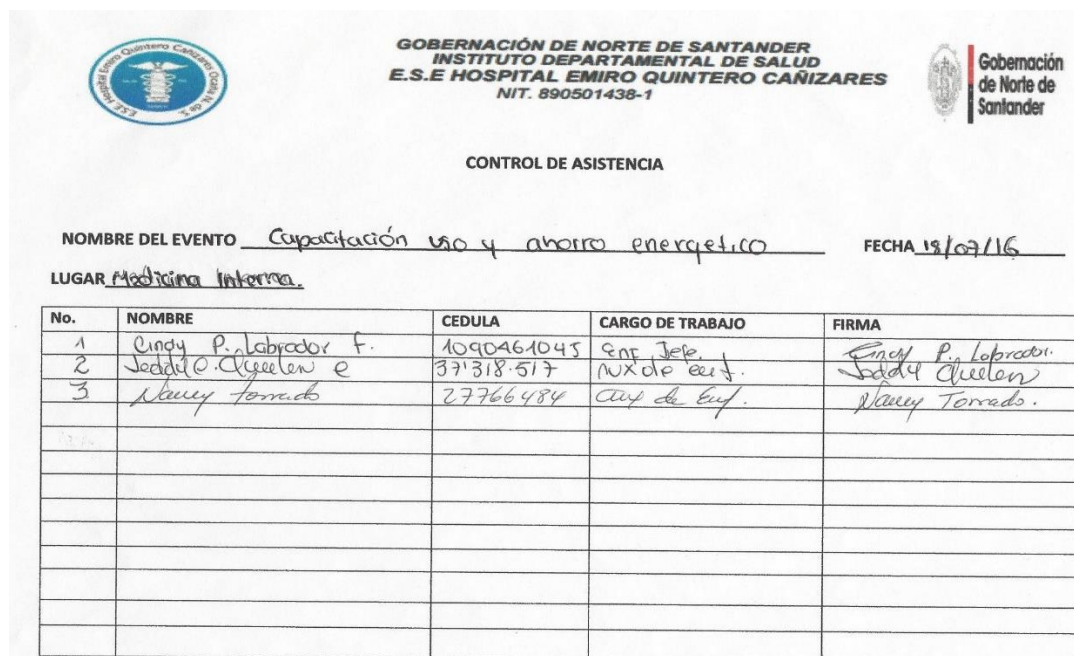 E.S.E. Hospital Emiro Quintero Cañizares Ocaña N. de S.
GOBERNACIÓN DE NORTE DE SANTANDER
INSTITUTO DEPARTAMENTAL DE SALUD
E.S.E HOSPITAL EMIRO QUINTERO CAÑIZARES
NIT. 890501438-1
Gobernación
de Norte de
Santander
CONTROL DE ASISTENCIA
NOMBRE DEL EVENTO Capacitación uso y ahorro energetico FECHA 18/07/16
LUGAR Medicina Interna.
No. NOMBRE CEDULA CARGO DE TRABAJO FIRMA
1 Cindy P. Labrador F. 1090461045 Enf Jefe. Cindy P. Labrador.
2 e 37'318.517 Aux de enf.
3 Nancy Torrado 27766484 Aux de Enf. Nancy Torrado.